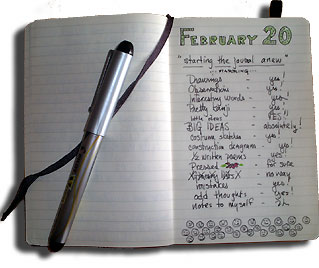 FEBRUARY 20
"starting the journal anew"
Drawings - yes!
Observations - yes!
Interesting Words - yes!
Pretty kanji - yes!
little ideas - YES!
BIG IDEAS absolutely!
costume sketches - yes!
construction diagrams - yo!
½ written poems - yes
Pressed - for sure
- no way
mistakes - yes!
odd thoughts - yes!
notes to myself -